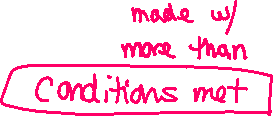 made w/
more than
Conditions met